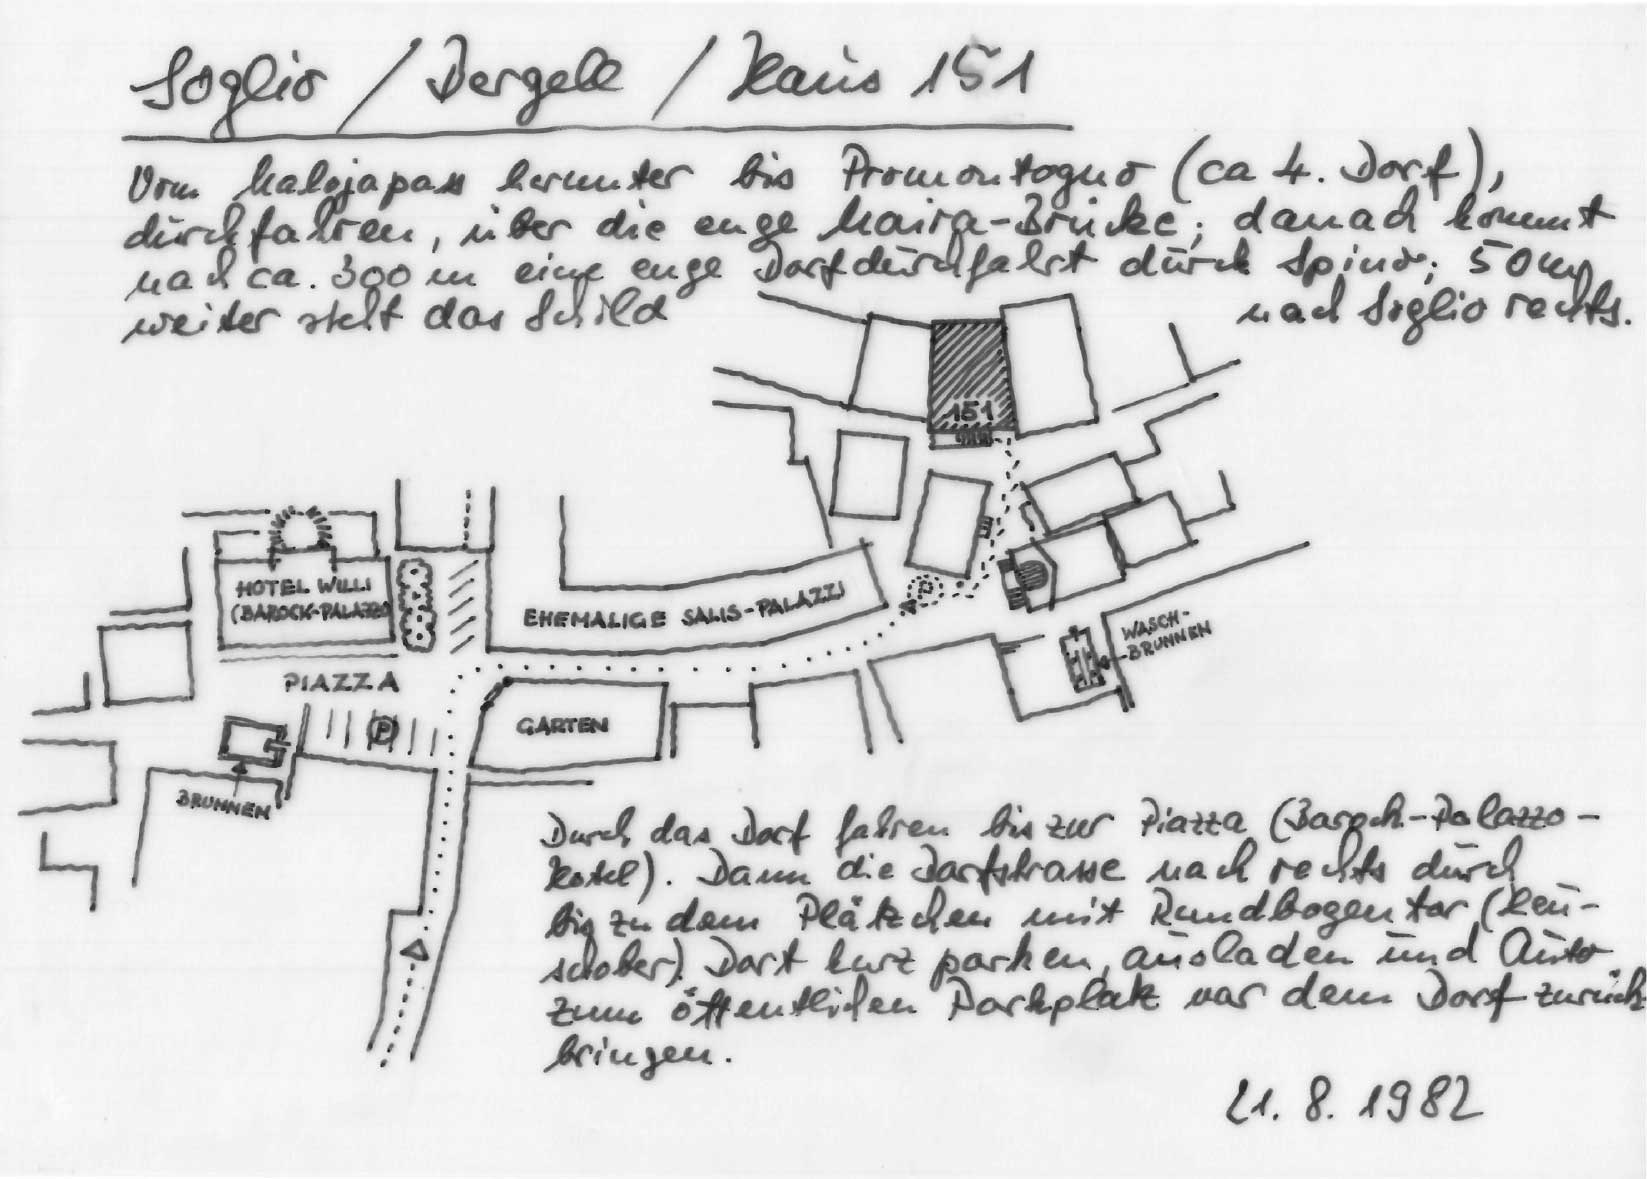 Soglio / Bergell / Haus 151
Vom Malojapass herunter bis Promontogno (ca 4. Dorf),
durchfahren, über die enge Maira-Brücke; danach kommt
nach ca. 300 m eine enge Dorfdurchfahrt durch Spino; 50 m
weiter steht das Schild nach Soglio rechts.
151
HOTEL WILLI
(BAROCK-PALAZZO
EHEMALIGE SALIS-PALAZZI
P
WASCH-
BRUNNEN
PIAZZA
P
GARTEN
BRUNNEN
Durch das Dorf fahren bis zur Piazza (Barock-Palazzo-
Hotel). Dann die Dorfstrasse nach rechts durch
bis zu dem Plätzchen mit Rundbogentor (Heu-
schober). Dort kurz parken, ausladen und Auto
zum öffentlichen Parkplatz vor dem Dorf zurück
bringen.
21. 8. 1982